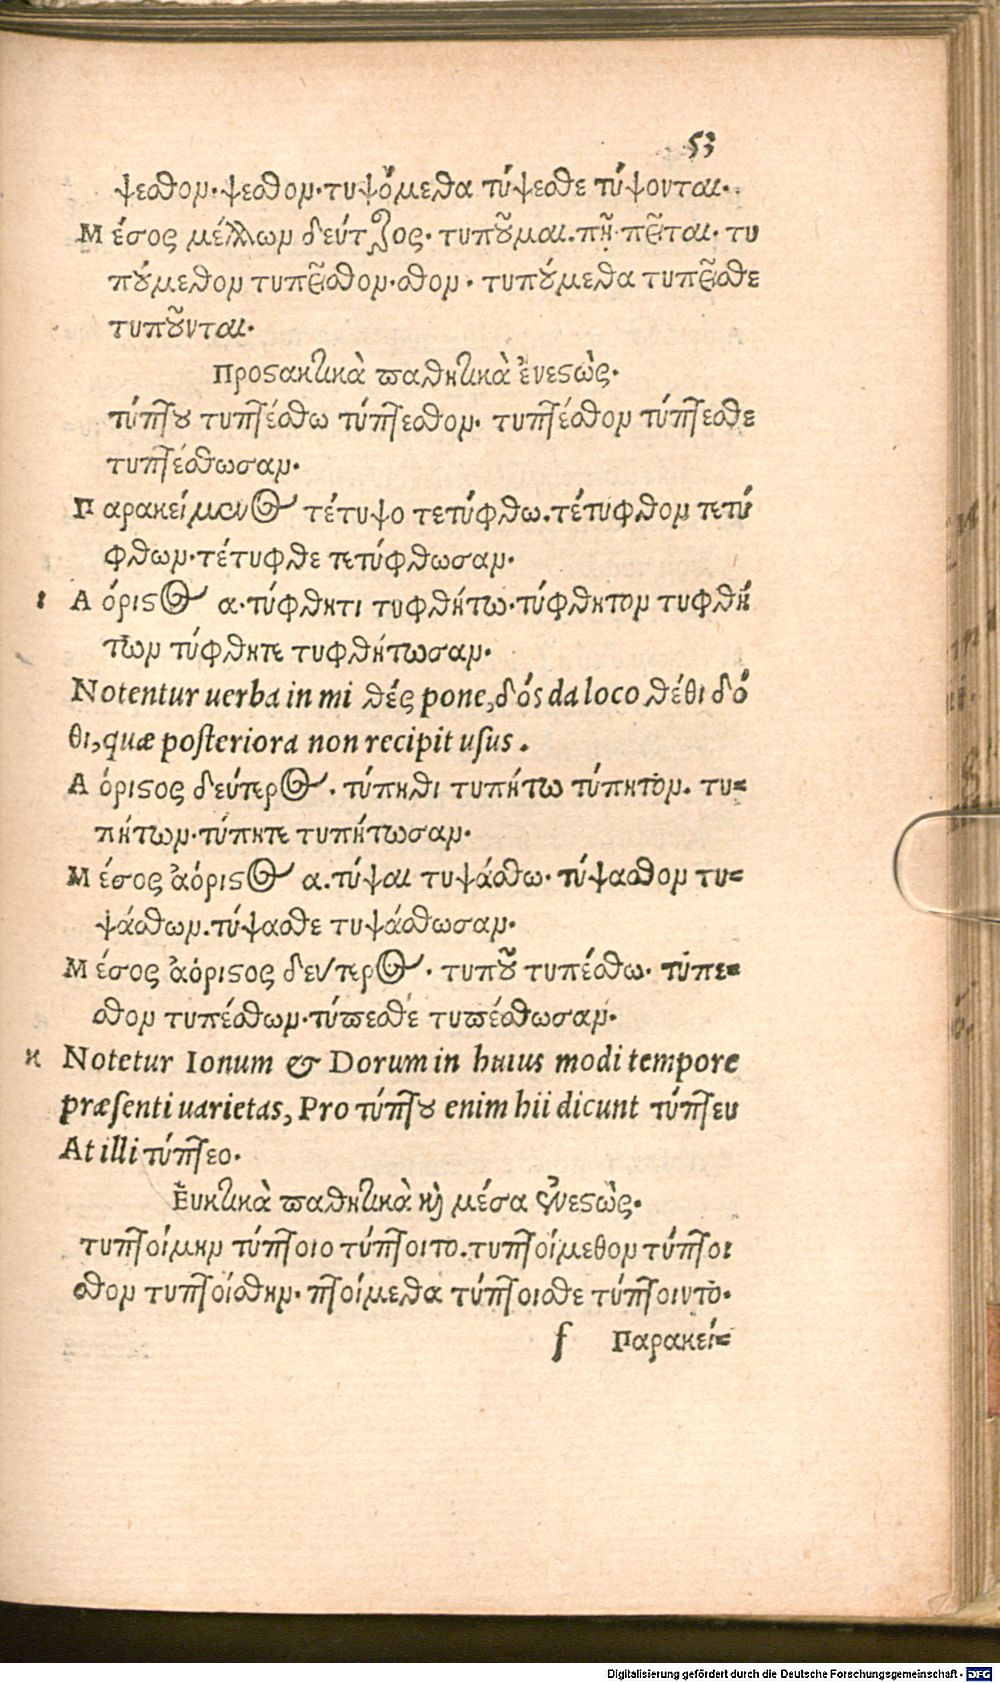 53
ψεσθον·ψεσθον·τυψόμεθα τύψεσθε τύψονται·
Μέσος μέλλων δεύτερος· τυποῦμαι. πῇ· πεῖται· τυ
πούμεθον τυπεῖσθον·σθον· τυπούμεθα τυπεῖσθε
τυποῦνται·
Προστακτικὰ παθητικὰ ἐνεστὼς·
τύπτου τυπτέσθω τύπτεσθον· τυπτέσθον τύπτεσθε
τυπτέσθωσαν·
Παρακείμενος τέτυψο τετύφθω. τέτυφθον τετύ
φθων·τέτυφθε τετύφθωσαν·
ι Αόριστος α·τύφθητι τυφθήτω·τύφθητον τυφθή
των τύφθητε τυφθήτωσαν·
Notentur uerba in mi θές pone, δός da loco θέθι δό
θι, quæ posteriora non recipit usus.
Αόριστος δεύτερος. τύπηθι τυπήτω τύπητον. τυ=
πήτων·τύπητε τυπήτωσαν·
Μέσος ἀόριστος α.τύψαι τυψάσθω· τύψασθον τυ=
ψάσθων.τύψασθε τυψάσθωσαν·
Μέσος ἀόριστος δεύτερος. τυποῦ τυπέσθω· τύπε=
σθον τυπέσθων·τύπεσθε τυπέσθωσαν·
κ Notetur Ionum & Dorum in huius modi tempore
præsenti uarietas, Pro τύπτου enim hii dicunt τύπτευ
At illi τύπτεο·
Εὐκτικὰ παθητικὰ καὶ μέσα ἐνεστὼς·
τυπτοίμην τύπτοιο τύπτοιτο.τυπτοίμεθον τύπτοι
σθον τυπτοίσθην· πτοίμεθα τύπτοισθε τύπτοιντο·
f Παρακεί=
Digitalisierung gefördert durch die Deutsche Forschungsgemeinschaft - DFG